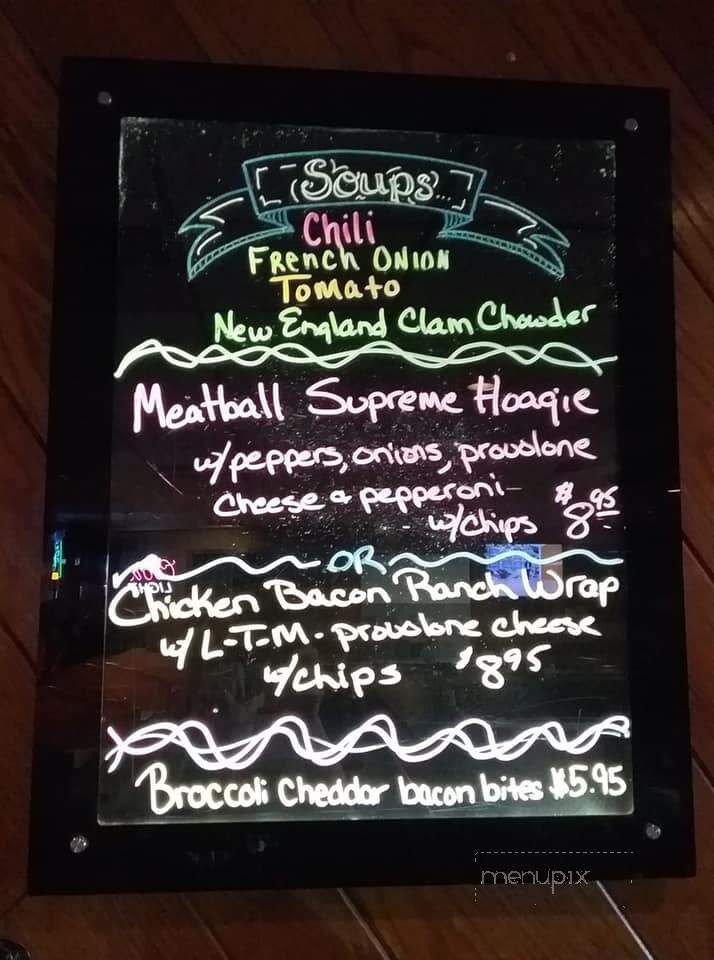 Soups
Chili
French Onion
Tomato
New England Clam Chowder
Meatball Supreme Hoagie
w/peppers, onions, provolone
cheese & pepperoni-
w/chips $8.95
OR
Chicken Bacon Ranch Wrap
w/ L-T-M - provolone cheese
w/chips $8.95
Broccoli cheddar bacon bites $5.95
menupix